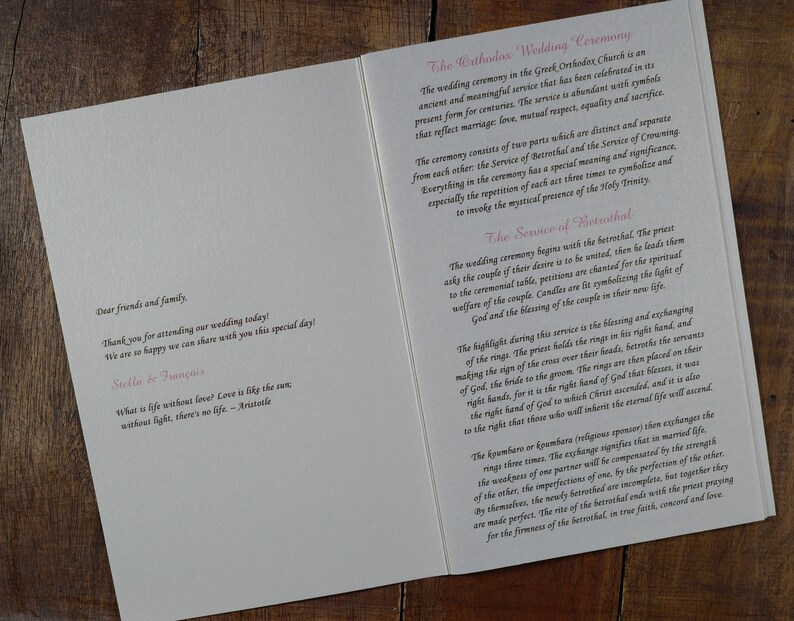 Dear friends and family,
Thank you for attending our wedding today!
We are so happy we can share with you this special day!
Stella & François
What is life without love? Love is like the sun;
without light, there's no life. – Aristotle
The Orthodox Wedding Ceremony
The wedding ceremony in the Greek Orthodox Church is an
ancient and meaningful service that has been celebrated in its
present form for centuries. The service is abundant with symbols
that reflect marriage: love, mutual respect, equality and sacrifice.
The ceremony consists of two parts which are distinct and separate
from each other: the Service of Betrothal and the Service of Crowning.
Everything in the ceremony has a special meaning and significance,
especially the repetition of each act three times to symbolize and
to invoke the mystical presence of the Holy Trinity.
The Service of Betrothal
The wedding ceremony begins with the betrothal. The priest
asks the couple if their desire is to be united, then he leads them
to the ceremonial table, petitions are chanted for the spiritual
welfare of the couple. Candles are lit symbolizing the light of
God and the blessing of the couple in their new life.
The highlight during this service is the blessing and exchanging
of the rings. The priest holds the rings in his right hand, and
making the sign of the cross over their heads, betroths the servants
of God, the bride to the groom. The rings are then placed on their
right hands, for it is the right hand of God that blesses, it was
the right hand of God to which Christ ascended, and it is also
to the right that those who will inherit the eternal life will ascend.
The koumbaro or koumbara (religious sponsor) then exchanges the
rings three times. The exchange signifies that in married life,
the weakness of one partner will be compensated by the strength
of the other, the imperfections of one, by the perfection of the other.
By themselves, the newly betrothed are incomplete, but together they
are made perfect. The rite of the betrothal ends with the priest praying
for the firmness of the betrothal, in true faith, concord and love.